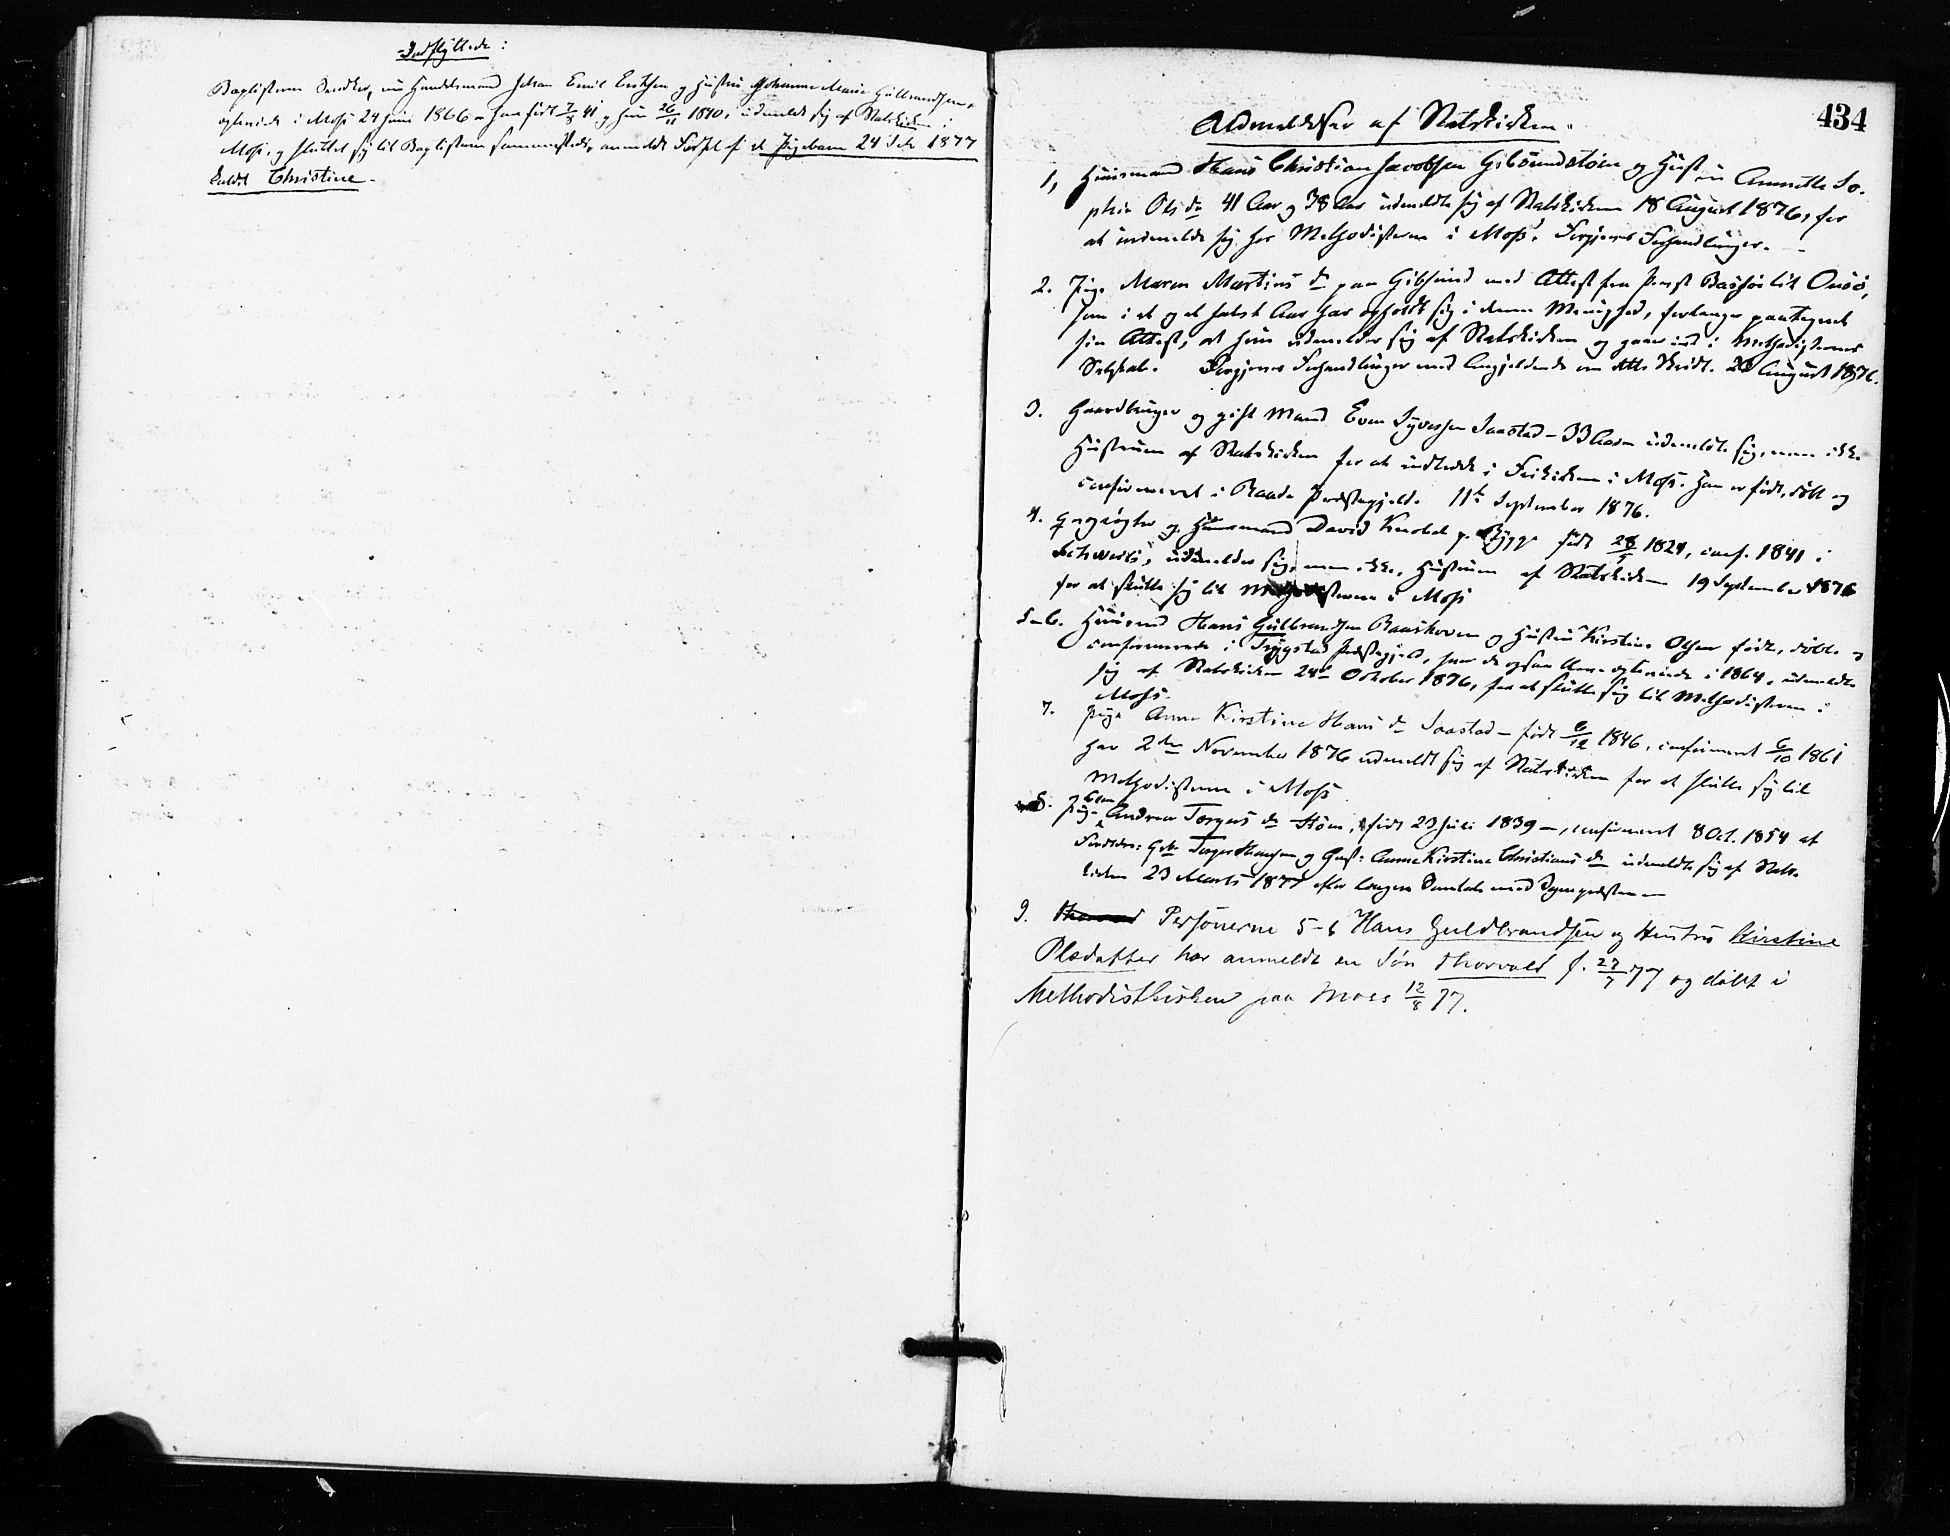 Indflyttede:
Baptisterne Snedker, nu Handelsmand Johan Emil Eriksen og Hustru Johanne Marie Gulbrandsen,
egteviede i Moss 24 Juni 1866 – han født 7/8 41 og hun 26/11 1840, udmeldt sig af Statskirken i
Moss og sluttet sig til Baptisterne sammesteds, anmeldt Fødsel af et Pigebarn 24 1877
kaldet Christine.
434
Udmeldelser af Statskirken.
1, Huusmand Hans Christian Jacobsen Gibsundstøen og Hustru Annette So-
phie Olsdr 41 Aar og 38 Aar udmeldte sig af Statskirken 18 August 1876, for
at indmelde sig hos Methodisterne i Moss. Forhandlinger.
2. Pige Maren Martinsdr paa Gibsund med Attest fra Onsö,
som i et og et halvt Aar har opholdt sig i denne Menighed, forlanger paategnet
sin Attest, at hun udmelder sig af Statskirken og gaaer ind i Methodisternes
Selskab. Forhandlinger med Angjeldende August 1876.
3. Gaardbruger og gift Mand Even Syversen Saastad – 33 Aar udmeldte sig, men ikke
Hustruen af Statskirken for at indtræde i Frikirken i Moss. Han er født, döbt og
confirmeret i Raade Præstegjeld. 11te September 1876.
4. og Huusmand David Knobel p. Rygge født 28/5 1824, conf. 1841 i
Schweits, udmelder sig, men ikke Hustruen af Statskirken 19 September 1876
for at slutte sig til Methodisterne i Moss
5–6. Huusmd Hans Gulbrandsen Raaskoven og Hustru Kirstine Olsen födt, döbte og
confirmerede i Trygstad Præstegjeld, hvor de ogsaa ere egteviede i 1864, udmeldte
sig af Statskirken 24de October 1876, for at slutte sig til Methodisterne i
Moss.
7. Pige Anne Kirstine Hansdr Saastad – født 6/12 1846, confirmeret 6/10 1861
har 2den November 1876 udmeldt sig af Statskirken for at slutte sig til
Methodisterne i Moss
8. Pige Andrea Torgersdr Støen, født 23 Juli 1839 –, confirmeret 8 Oct. 1854 af
Forældre: Torger Hansen og Hust: Anne Kirstine Christiansdr udmeldte sig af Stats-
kirken 23 Marts 1877 efter længere Samtale med Sognepræsten –
9. Personerne 5–6 Hans Guldbrandsen og Hustru Kirstine
Olsdatter har anmeldt en Søn Thorvald f. 27/7 77 og døbt i
Methodistkirken paa Moss 12/8 77.